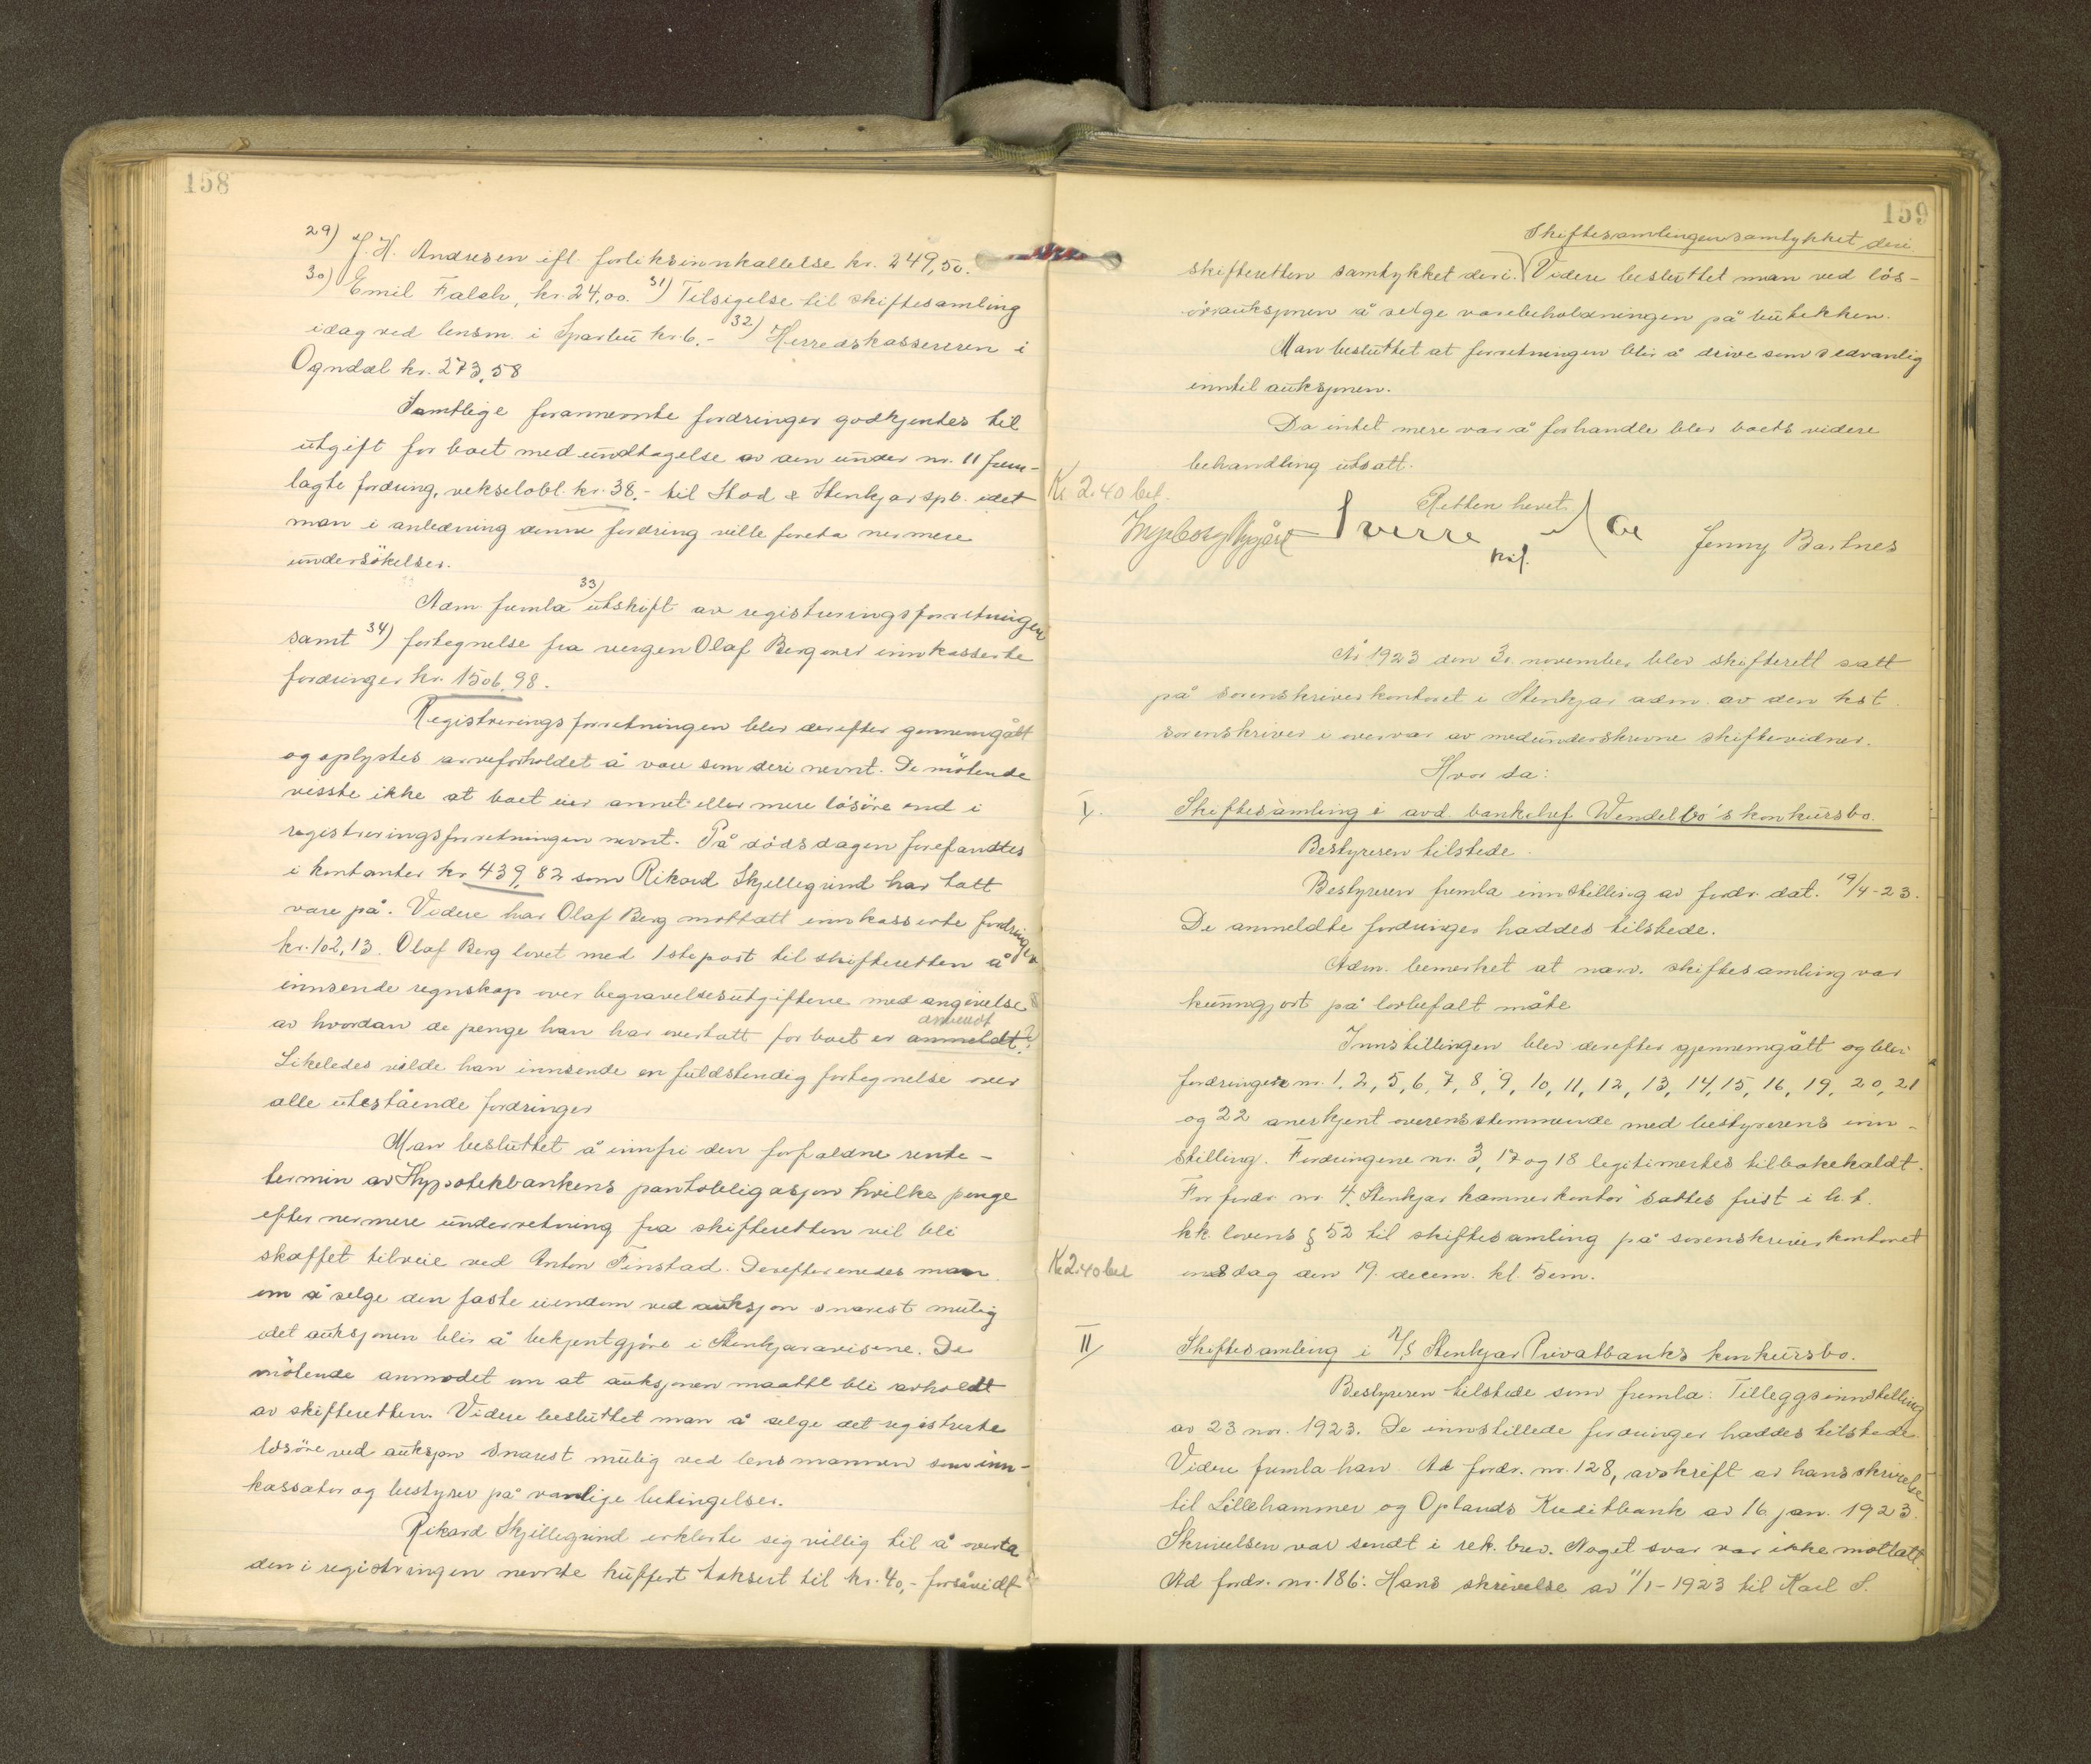 158
29) J. H. Andresen ifl. forliksinnkallelse kr. 249,50.
30) Emil Falch, kr. 24,00. 31) Tilsigelse til skiftesamling
idag ved lensm. i Sparbu kr. 6.- 32) Herredskassereren i
Ogndal kr. 273,58
Samtlige forannevnte fordringer godkjentes til
utgift for boet med undtagelse av den under nr. 11 frem-
lagte fordring, vekselobl. kr. 38.- til Stod & Stenkjær spb. idet
man i anledning denne fordring ville foreta nermere
undersökelser.
Adm. fremla 33) utskrift av registreringsforretningen
samt 34) fortegnelse fra vergen Olaf Berg over innkasserte
fordringer kr. 1506,98.
Registreringsforretningen blev derefter gennemgått
og oplystes arveforholdet å være som deri nevnt. De mötende
visste ikke at boet eier annet eller mere lösöre end i
registreringsforretningen nevnt. På dödsdagen forefandtes
i kontanter kr. 439,82 som Rikard Skjellegrind har tatt
vare på. Videre har Olaf Berg mottatt innkasserte fordringer
kr. 102,13. Olaf Berg lovet med 1ste post til skifteretten å
innsende regnskap over begravelsesutgiftene med angivelse
av hvordan de penge han har overtatt for boet er anmeldt. anvendt
Likeledes vilde han innsende en fuldstendig fortegnelse over
alle utestående fordringer
Man besluttet å innfri den forfaldne rente-
termin av Hypotekbankens pantobligasjon hvilke penge
efter nermere underretning fra skifteretten vil bli
skaffet tilveie ved Anton Finstad. Derefter enedes man
om å selge den faste eiendom ved auksjon snarest mulig
idet auksjonen blir å bekjentgjöre i Stenkjæravisene. De
mötende anmodet om at auksjonen maatte bli avholdt
av skifteretten. Videre besluttet man å selge det registrerte
lösöre ved auksjon snarest mulig ved lensmannen som inn-
kassator og bestyrer på vanlige betingelser.
Rikard Skjellegrind erklerte sig villig til å overta
den i registringen nevnte kuffert taksert til kr. 40,- forsåvidt
159
Skiftesamlingen samtykket deri
skifteretten samtykket deri. Videre besluttet man ved lös-
öreauksjonen å selge varebeholdningen på butikken.
Man besluttet at forretningen blir å drive som sedvanlig
inntil auksjonen.
Da intet mere var å forhandle blev boets videre
behandling utsatt.
Kr. 2.40 bet.
Retten hevet.
Ingeborg Nygård Sverre Moe Jenny Bartnes
kst.
År 1923 den 30. november blev skifterett satt
på sorenskriverkontoret i Stenkjær adm. av den kst.
sorenskriver i overvær av medunderskrevne skiftevidner.
Hvor da:
I/. Skiftesamling i avd. bankchef Wendelbo's konkursbo.
Bestyreren tilstede.
Bestyreren fremla innstilling av fordr. dat. 19/4-23.
De anmeldte fordringer haddes tilstede.
Adm. bemerket at nærv. skiftesamling var
kunngjort på lovbefalt måte
Innstillingen blev derefter gjennemgått og blev
fordringene nr. 1, 2, 5, 6, 7, 8, 9, 10, 11, 12, 13, 14, 15, 16, 19, 20, 21
og 22 anerkjent overensstemmende med bestyrerens inn-
stilling. Fordringene nr. 3, 17 og 18 legitimertes tilbakekaldt.
For fordr. nr. 4, "Stenkjær kemnerkontor" sattes frist i h. t.
kk. lovens § 52 til skiftesamling på sorenskriverkontoret
Kr. 2.40 bet
onsdag den 19. decem. kl. 5 em.
II/ Skiftesamling i A/S Stenkjær Privatbanks konkursbo.
Bestyreren tilstede som fremla: Tilleggsinnstilling
av 23 nov. 1923. De innstillede fordringer haddes tilstede.
Videre fremla han Ad fordr. nr. 128, avskrift av hans skrivelse
til Lillehammer og Oplands Kreditbank av 16. jan. 1923.
Skrivelsen var sendt i rek. brev. Noget svar var ikke mottatt.
Ad fordr. nr. 186: Hans skrivelse av 11/1-1923 til Karl S.